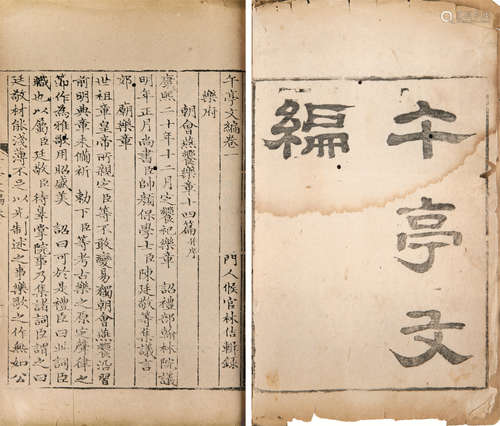 午亭文
編
午亭文編卷一
門人候官林佶輯録
樂府
朝會燕饗樂章十四篇并序
康熙二十年十二月定饗祀樂章 詔禮部翰林院議
明年正月尚書臣帥顏保學士臣陳廷敬等集議言
郊 廟樂章
世祖章皇帝所親定臣等不敢變易獨朝會燕饗沿習
前明典章未備祈 勅下臣等考古樂之原定聲律之
節作為雅歌用昭盛美 詔曰可於是禮臣曰此詞臣
職也以屬臣廷敬臣待辠掌院事乃集諸詞臣謂之曰
廷敬材能淺薄不足以先制述之事樂歌之作無如公